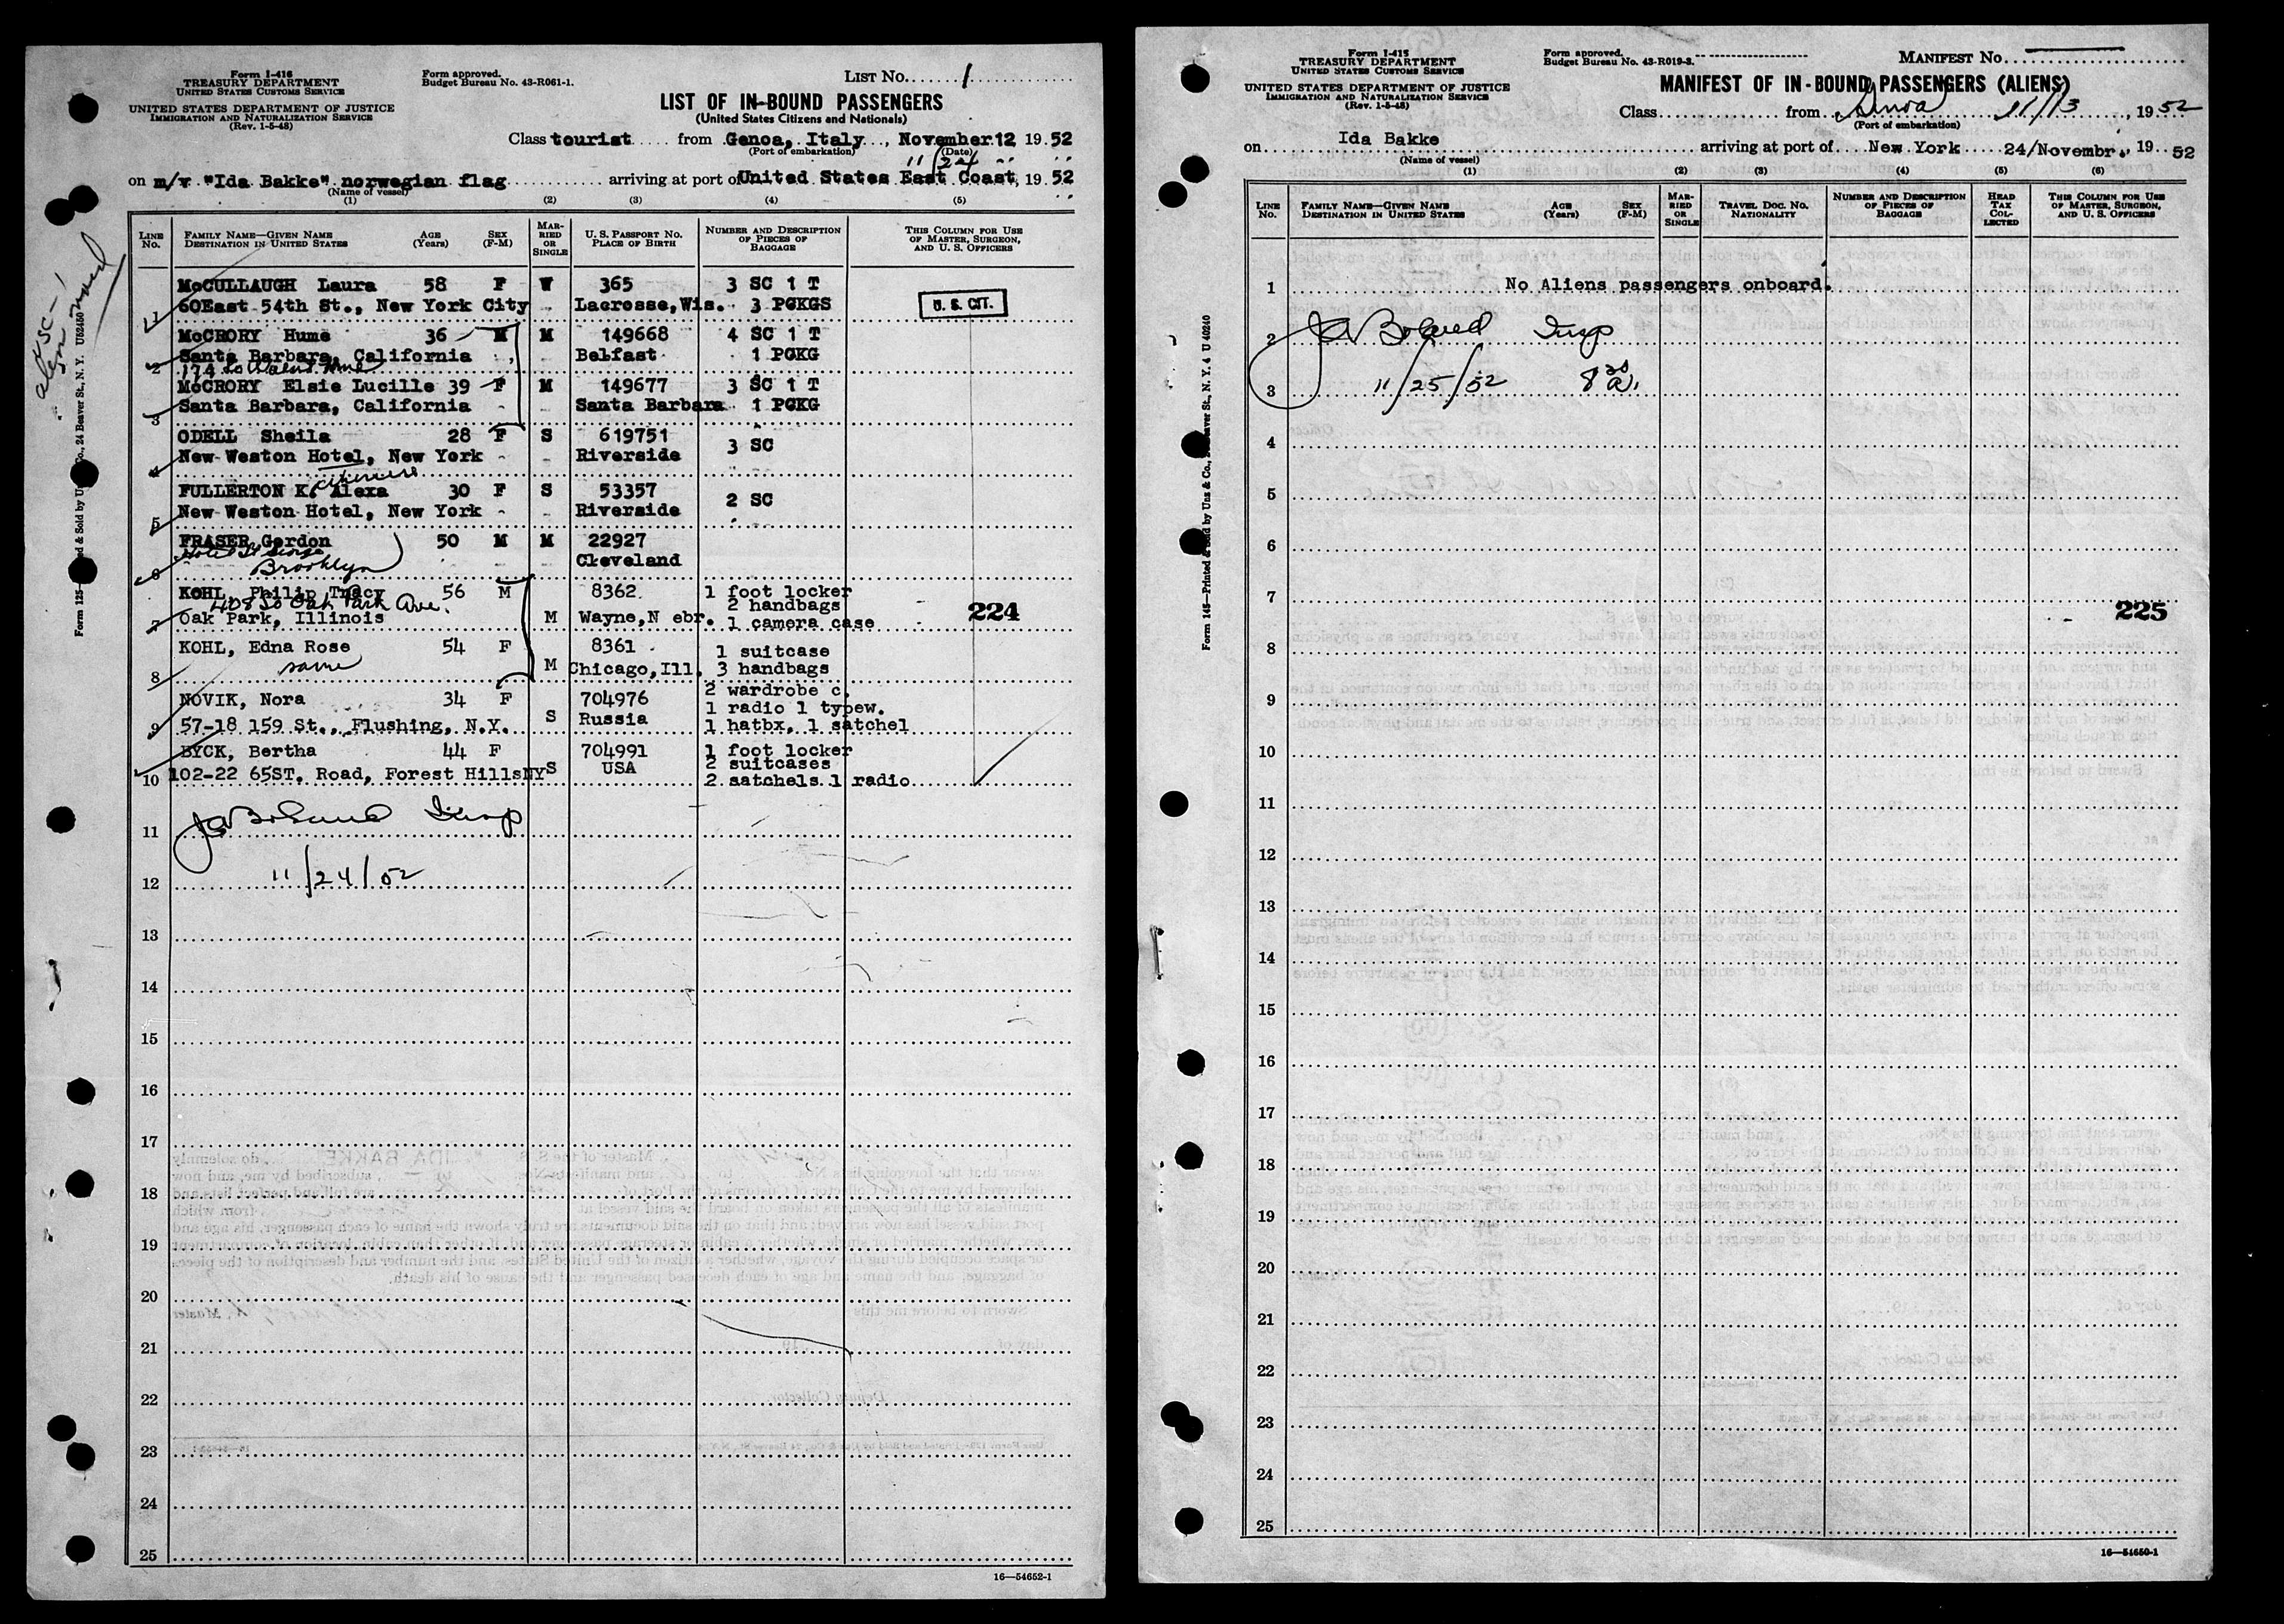 Form I-416
TREASURY DEPARTMENT
UNITED STATES CUSTOMS SERVICE
UNITED STATES DEPARTMENT OF JUSTICE
IMMIGRATION AND NATURALIZATION SERVICE
(Rev. 1-5-48)
Form approved.
Budget Bureau No. 43-R061-1.
LIST No. 1
LIST OF IN-BOUND PASSENGERS
(United States Citizens and Nationals)
Class tourist from Genoa, Italy, November 12 1952
(Port of embarkation) (Date)
11/24
on m/v "Ida Bakke" norwegian flag arriving at port of United States East Coast, 1952
(Name of vessel)
(1) (2) (3) (4) (5)
LINE No. FAMILY NAME—GIVEN NAME DESTINATION IN UNITED STATES AGE (Years) SEX (F-M) MARRIED OR SINGLE U. S. PASSPORT No. PLACE OF BIRTH NUMBER AND DESCRIPTION OF PIECES OF BAGGAGE THIS COLUMN FOR USE OF MASTER, SURGEON, AND U. S. OFFICERS
McCULLAUGH Laura 58 F W 365 3 SC 1 T
1 60East 54th St., New York City Lacrosse,Wis. 3 PGKGS U. S. CIT.
McCRORY Hume 36 M M 149668 4 SC 1 T
2 Santa Barbara, California Belfast 1 PGKG
174
McCRORY Elsie Lucille 39 F M 149677 3 SC 1 T
3 Santa Barbara, California Santa Barbara 1 PGKG
ODELL Sheila 28 F S 619751 3 SC
4 New Weston Hotel, New York Riverside
FULLERTON K. Alexa 30 F S 53357 2 SC
5 New Weston Hotel, New York Riverside
FRASER Gordon 50 M M 22927
Hotel St George
6 Brooklyn Cleveland
KOHL, Philip Tracy 56 M 8362 1 foot locker
408 So Oak Park Ave. 2 handbags 224
7 Oak Park, Illinois M Wayne,N ebr. 1 camera case
KOHL, Edna Rose 54 F 8361 1 suitcase
8 same M Chicago,Ill. 3 handbags
NOVIK, Nora 34 F 704976 2 wardrobe c.
1 radio 1 typew.
9 57-18 159 St., Flushing, N.Y. S Russia 1 hatbx, 1 satchel
BYCK, Bertha 44 F 704991 1 foot locker
2 suitcases
10 102-22 65ST. Road, Forest HillsNY S USA 2 satchels 1 radio
11 Boland Insp
12 11/24/52
13
14
15
16
17
18
19
20
21
22
23
24
25
16—54652-1
Form I-415
TREASURY DEPARTMENT
UNITED STATES CUSTOMS SERVICE
UNITED STATES DEPARTMENT OF JUSTICE
IMMIGRATION AND NATURALIZATION SERVICE
(Rev. 1-5-48)
Form approved.
Budget Bureau No. 43-R019-3.
MANIFEST No.
MANIFEST OF IN-BOUND PASSENGERS (ALIENS)
Class from Genoa 11/13, 1952
(Port of embarkation)
on Ida Bakke arriving at port of New York 24/Novembr., 1952
(Name of vessel)
(1) (2) (3) (4) (5) (6)
LINE No. FAMILY NAME—GIVEN NAME DESTINATION IN UNITED STATES AGE (Years) SEX (F-M) MARRIED OR SINGLE TRAVEL DOC. NO. NATIONALITY NUMBER AND DESCRIPTION OF PIECES OF BAGGAGE HEAD TAX COLLECTED THIS COLUMN FOR USE OF MASTER, SURGEON, AND U. S. OFFICERS
1 No Aliens passengers onboard.
2 Boland Insp
3 11/25/52 8 30 a.
4
5
6
7 225
8
9
10
11
12
13
14
15
16
17
18
19
20
21
22
23
24
25
16—54650-1